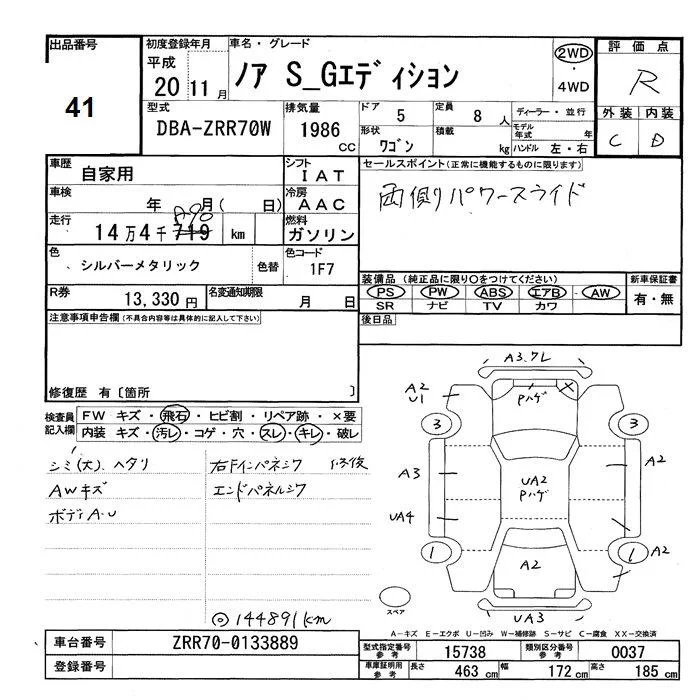 出品番号
41
初度登録年月
平成
20 11月
車名・グレード
ノア S_Gエディション
2WD
・
4WD
評価点
R
外装 内装
C D
型式
DBA-ZRR70W
排気量
1986
cc
ドア 5
定員 8 人
形状
ワゴン
積載
kg
ディーラー・並行
モデル年式 年
ハンドル 左・右
車歴
自家用
シフト
IAT
車検
年 月( 日)
冷房
AAC
走行
14万4千719 km
燃料
ガソリン
色
シルバーメタリック
色替
色コード
1F7
R券
13,330 円
名変通知期限
月 日
セールスポイント(正常に機能するものに限ります)
両側パワースライド
装備品(純正品に限り○をつけてください)
PS PW ABS エアB AW
SR ナビ TV カワ
新車保証書
有・無
後日品
注意事項申告欄(不具合内容等は具体的に記入して下さい)
修復歴 有〔箇所 〕
検査員記入欄
FW キズ・飛石・ヒビ割・リペア跡・×要
内装 キズ・汚レ・コゲ・穴・スレ・キレ・破レ
シミ(大)、ヘタリ
AWキズ
ボディA・U
右Fインパネシワ 修復
エンドパネルシワ
◎144891km
A3.7L
Pハゲ
A2
U1
3
3
A3
A2
UA2
Pハゲ
UA4
1
1
A2
A2
スペア
UA3
A-キズ E-エクボ U-凹み W-補修跡 S-サビ C-腐食 XX-交換済
車台番号
ZRR70-0133889
登録番号
型式指定番号
参考
15738
類別区分番号
参考
0037
車庫証明用
参考
長さ 463 cm
幅 172 cm
高さ 185 cm